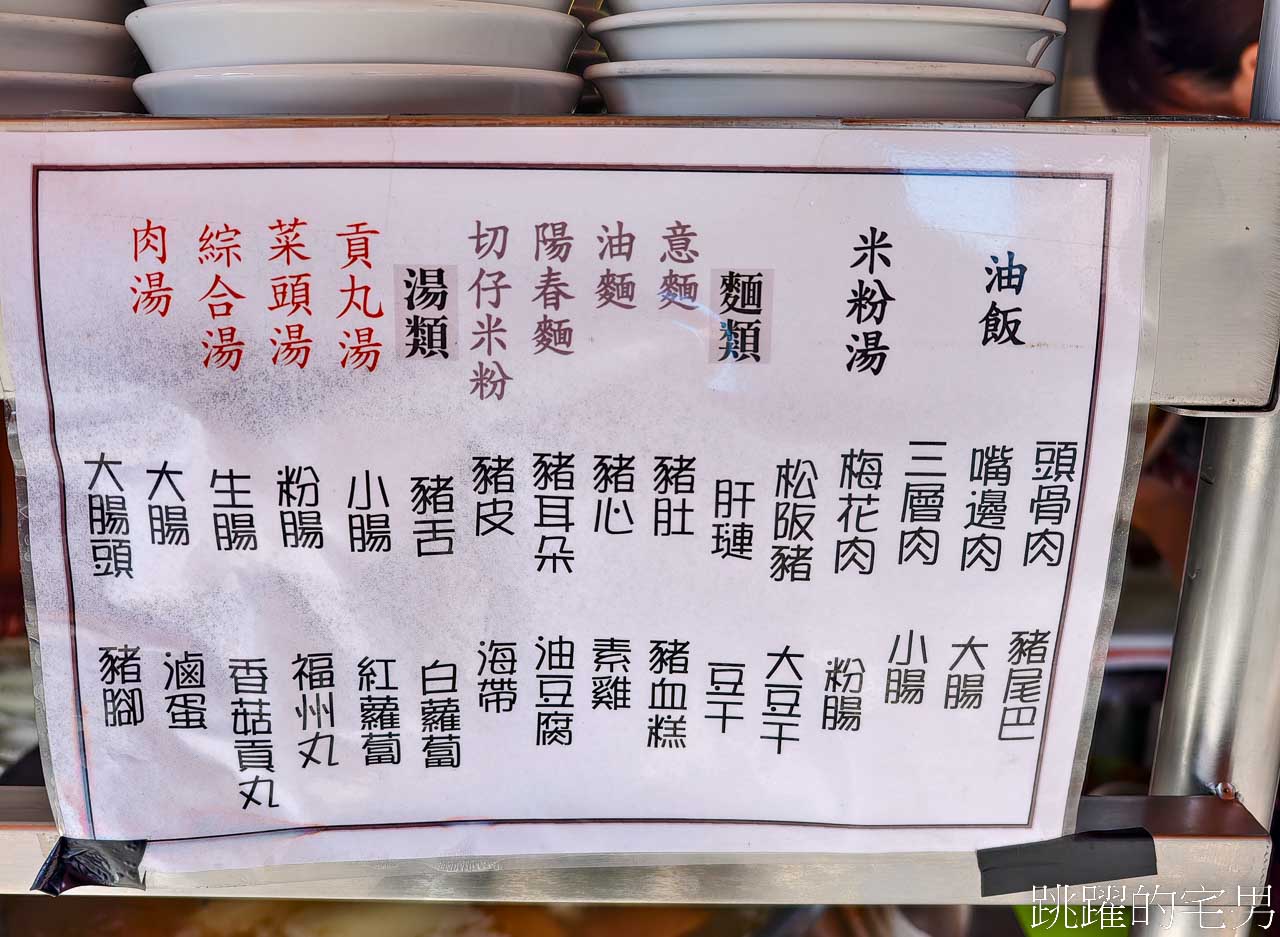 油飯
米粉湯
麵類
意麵
油麵
陽春麵
切仔米粉
湯類
貢丸湯
菜頭湯
綜合湯
肉湯
頭骨肉
嘴邊肉
三層肉
梅花肉
松阪豬
肝璉
豬肚
豬心
豬耳朵
豬皮
豬舌
小腸
粉腸
生腸
大腸
大腸頭
豬尾巴
大腸
小腸
粉腸
大豆干
豆干
豬血糕
素雞
油豆腐
海帶
白蘿蔔
紅蘿蔔
福州丸
香菇貢丸
滷蛋
豬腳
跳躍的宅男